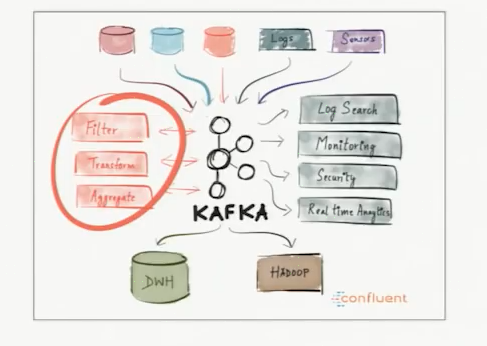 Logs
Sensors
Filter
Transform
Aggregate
Log Search
Monitoring
Security
Real time Analytics
KAFKA
DWH
HADOOP
confluent